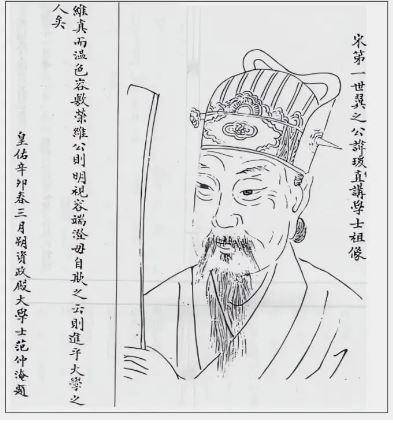 宋第一世翼之公諱瑗直講學士祖像
維真而溫色容數榮維公則明視容端澄毋自欺之云則進乎大學之
人矣
皇佑辛卯春三月朔資政殿大學士范仲淹題